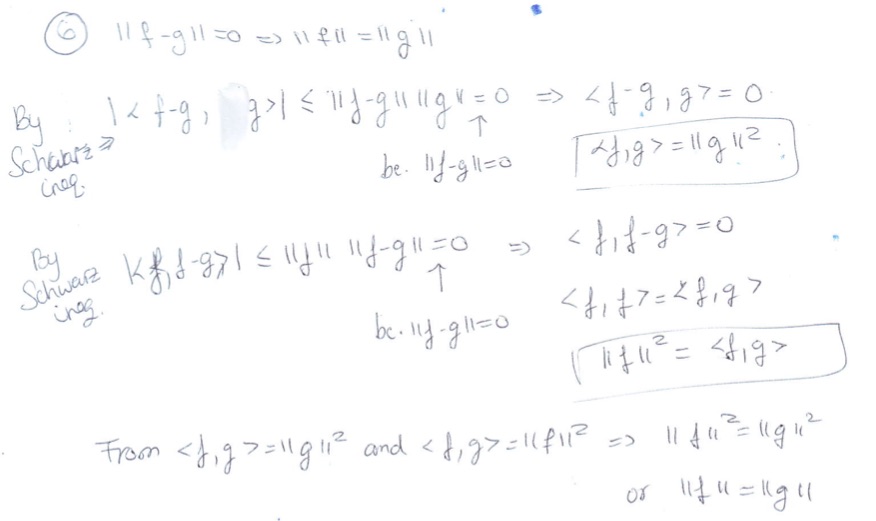 ⑥ ||f-g||=0 => ||f||=||g||
By Schwarz ineq. => |<f-g, g>| ≤ ||f-g|| ||g||=0 => <f-g,g>=0
↑
bc. ||f-g||=0
<f,g>=||g||²
By Schwarz ineq. |<f,f-g>| ≤ ||f|| ||f-g||=0 => <f,f-g>=0
↑
<f,f>=<f,g>
bc. ||f-g||=0
||f||² = <f,g>
From <f,g>=||g||² and <f,g>=||f||² => ||f||²=||g||²
or ||f||=||g||